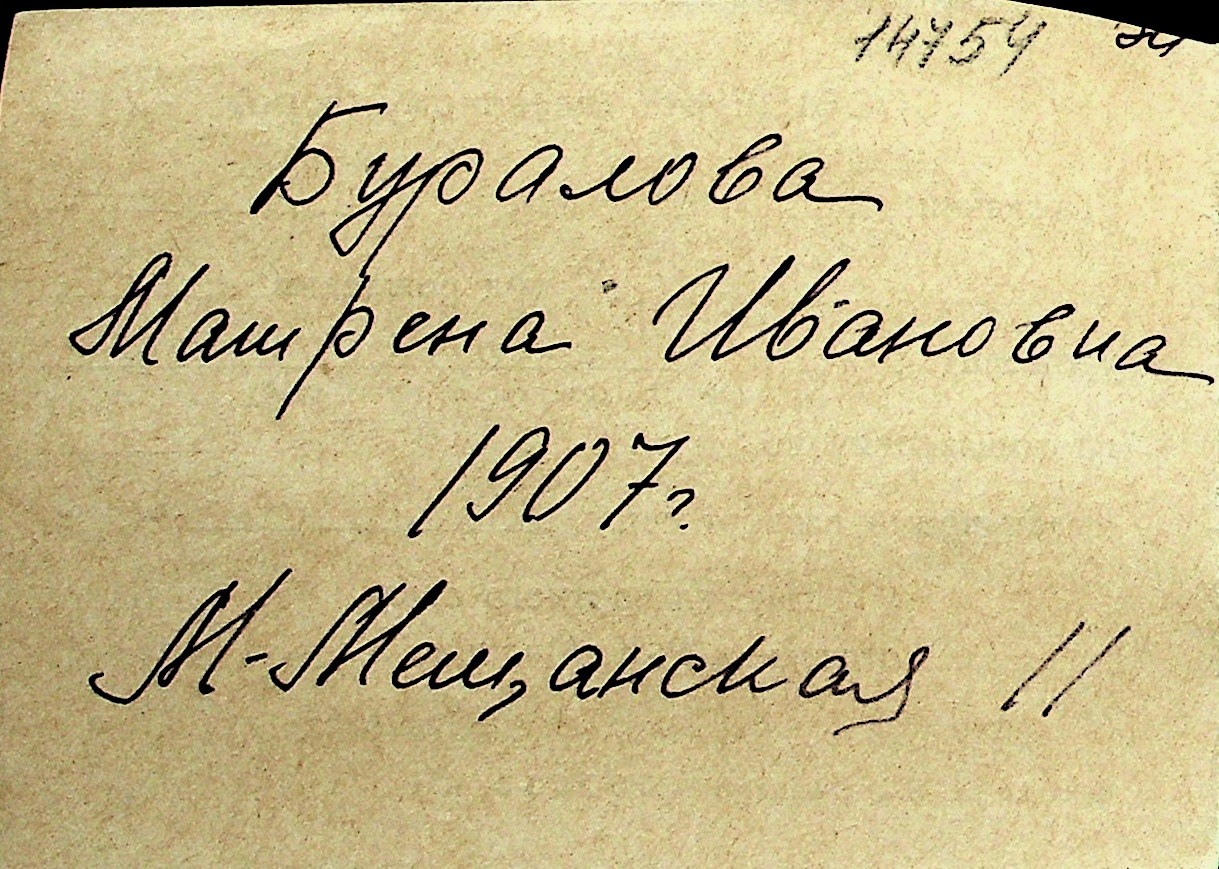 14754
Буралова
Матрена Ивановна
1907г.
М-Мещанская 11